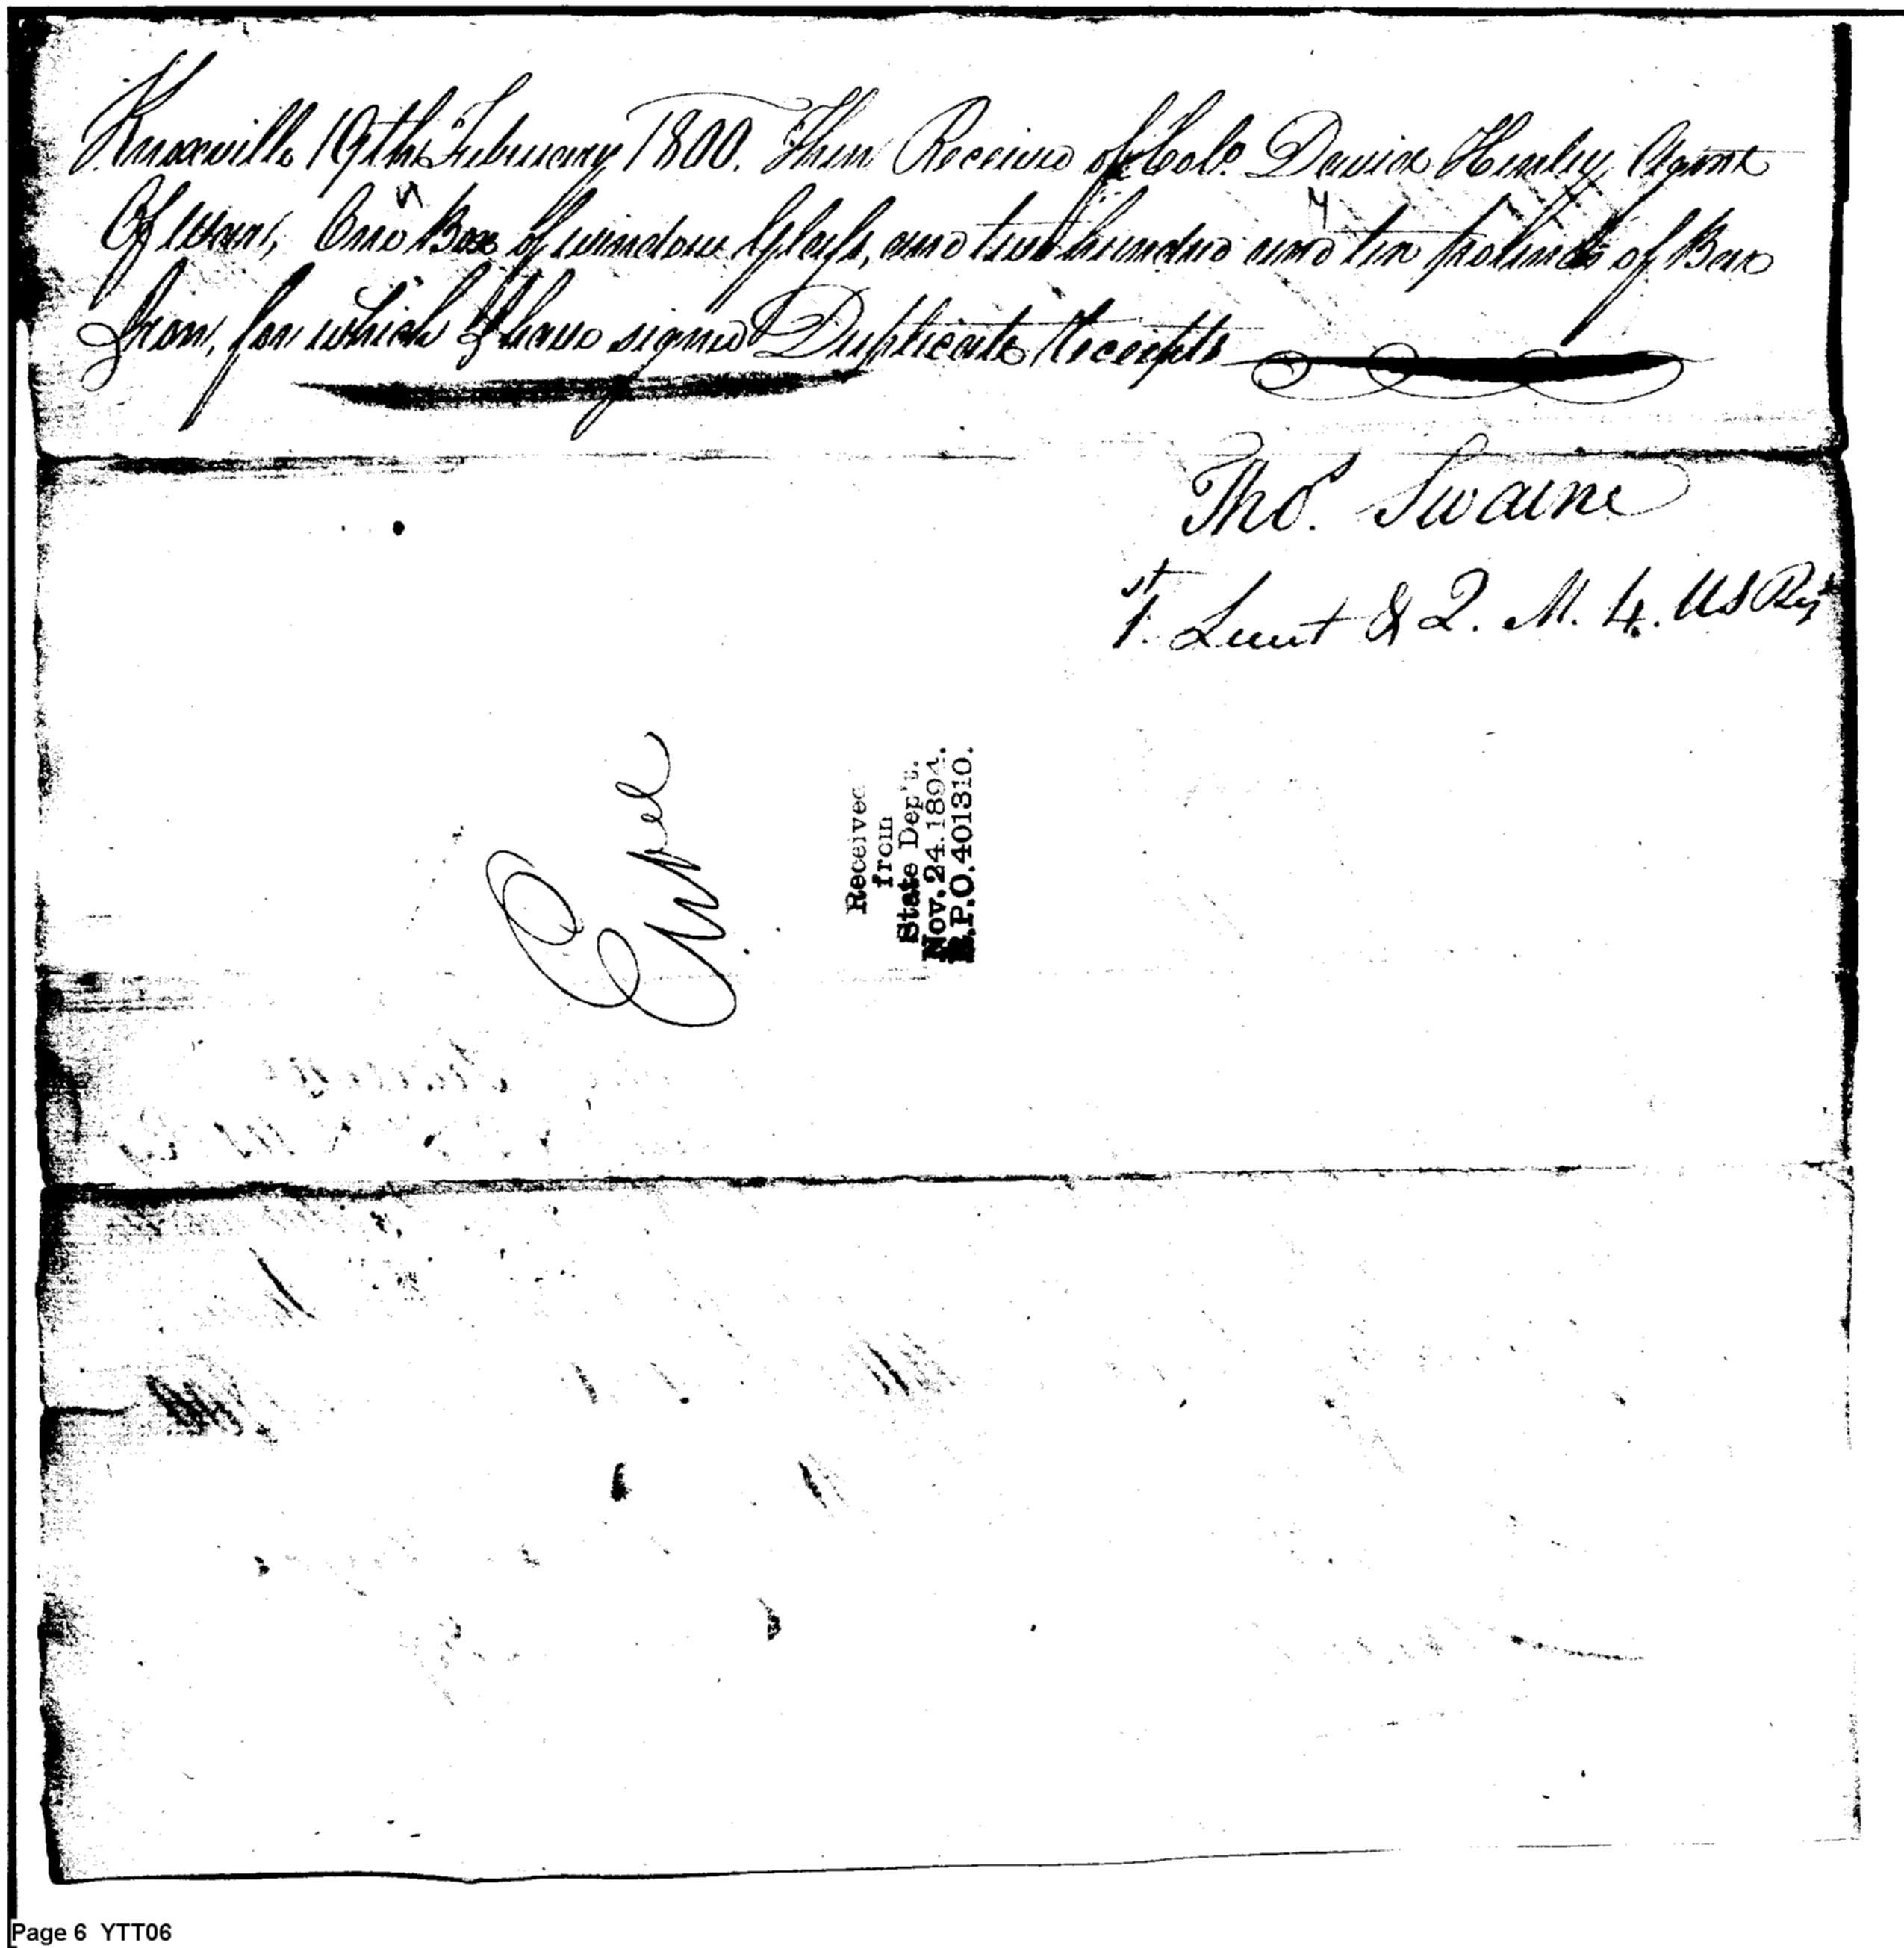 Knoxville 19th February 1800. Then Received of Colo. David Henley Agent
Of War, One Box of window Glass, and two hundred and ten pounds of Bar
Iron, for which I have signed Duplicate Receipts
Thos. Swaine
1st. Lieut & Q. M. 4. US Regt
Received
from
State Dep't.
Nov. 24. 1894.
R.P.O. 401310.
Page 6 YTT06